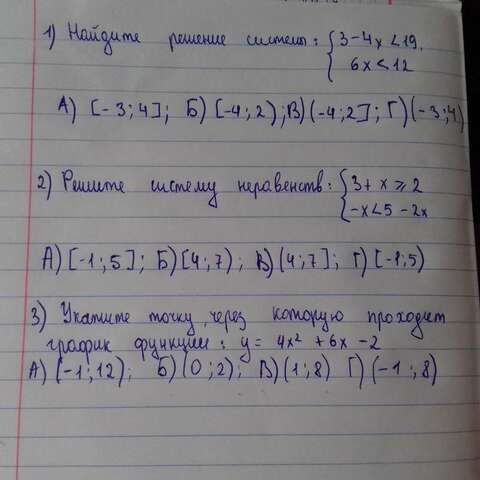 1) Найдите решение системы: { 3-4x < 19.
6x < 12
А) [-3;4]; Б) [-4;2); В) (-4;2]; Г) (-3;4)
2) Решите систему неравенств: { 3+x ⩾ 2
-x < 5 - 2x
А) [-1;5]; Б) [4;7); В) (4;7]; Г) [-1;5)
3) Укажите точку, через которую проходит
график функции: y = 4x² + 6x - 2
А) (-1;12); Б) (0;2); В) (1;8) Г) (-1;8)